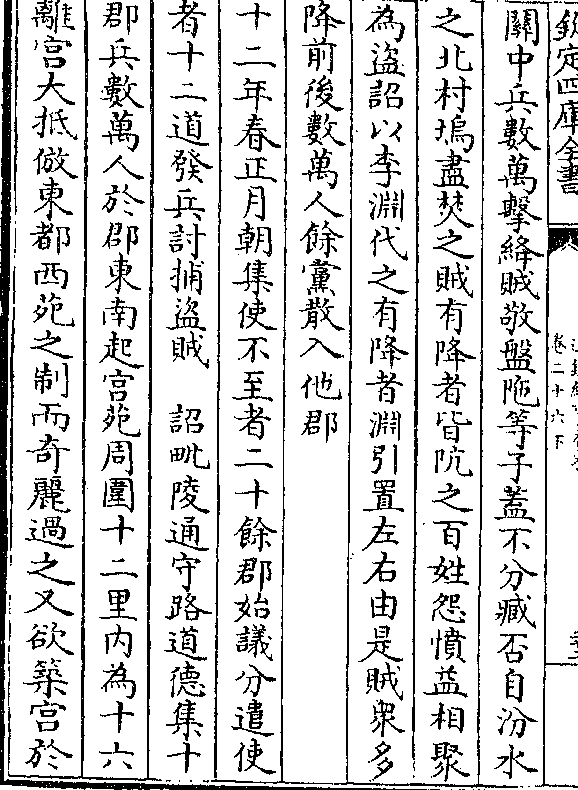 欽定四庫全書
卷二十六下
關中兵數萬擊絳賊敬盤陁等子蓋不分臧否自汾水
之北村塢盡焚之賊有降者皆阬之百姓怨憤益相聚
為盜詔以李淵代之有降者淵引置左右由是賊衆多
降前後數萬人餘黨散入他郡
十二年春正月朝集使不至者二十餘郡始議分遣使
者十二道發兵討捕盜賊　詔毗陵通守路道德集十
郡兵數萬人於郡東南起宫苑周圍十二里内為十六
離宫大抵倣東都西苑之制而奇麗過之又欲築宫於